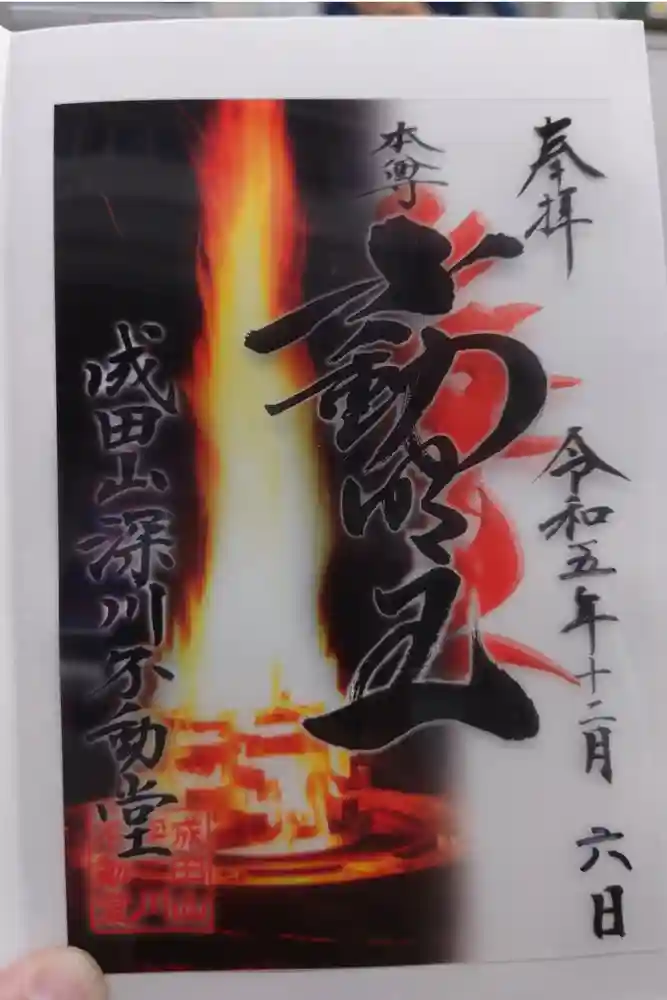 奉拝
令和五年十二月 六日
本尊
不動明王
成田山深川不動堂
成田山